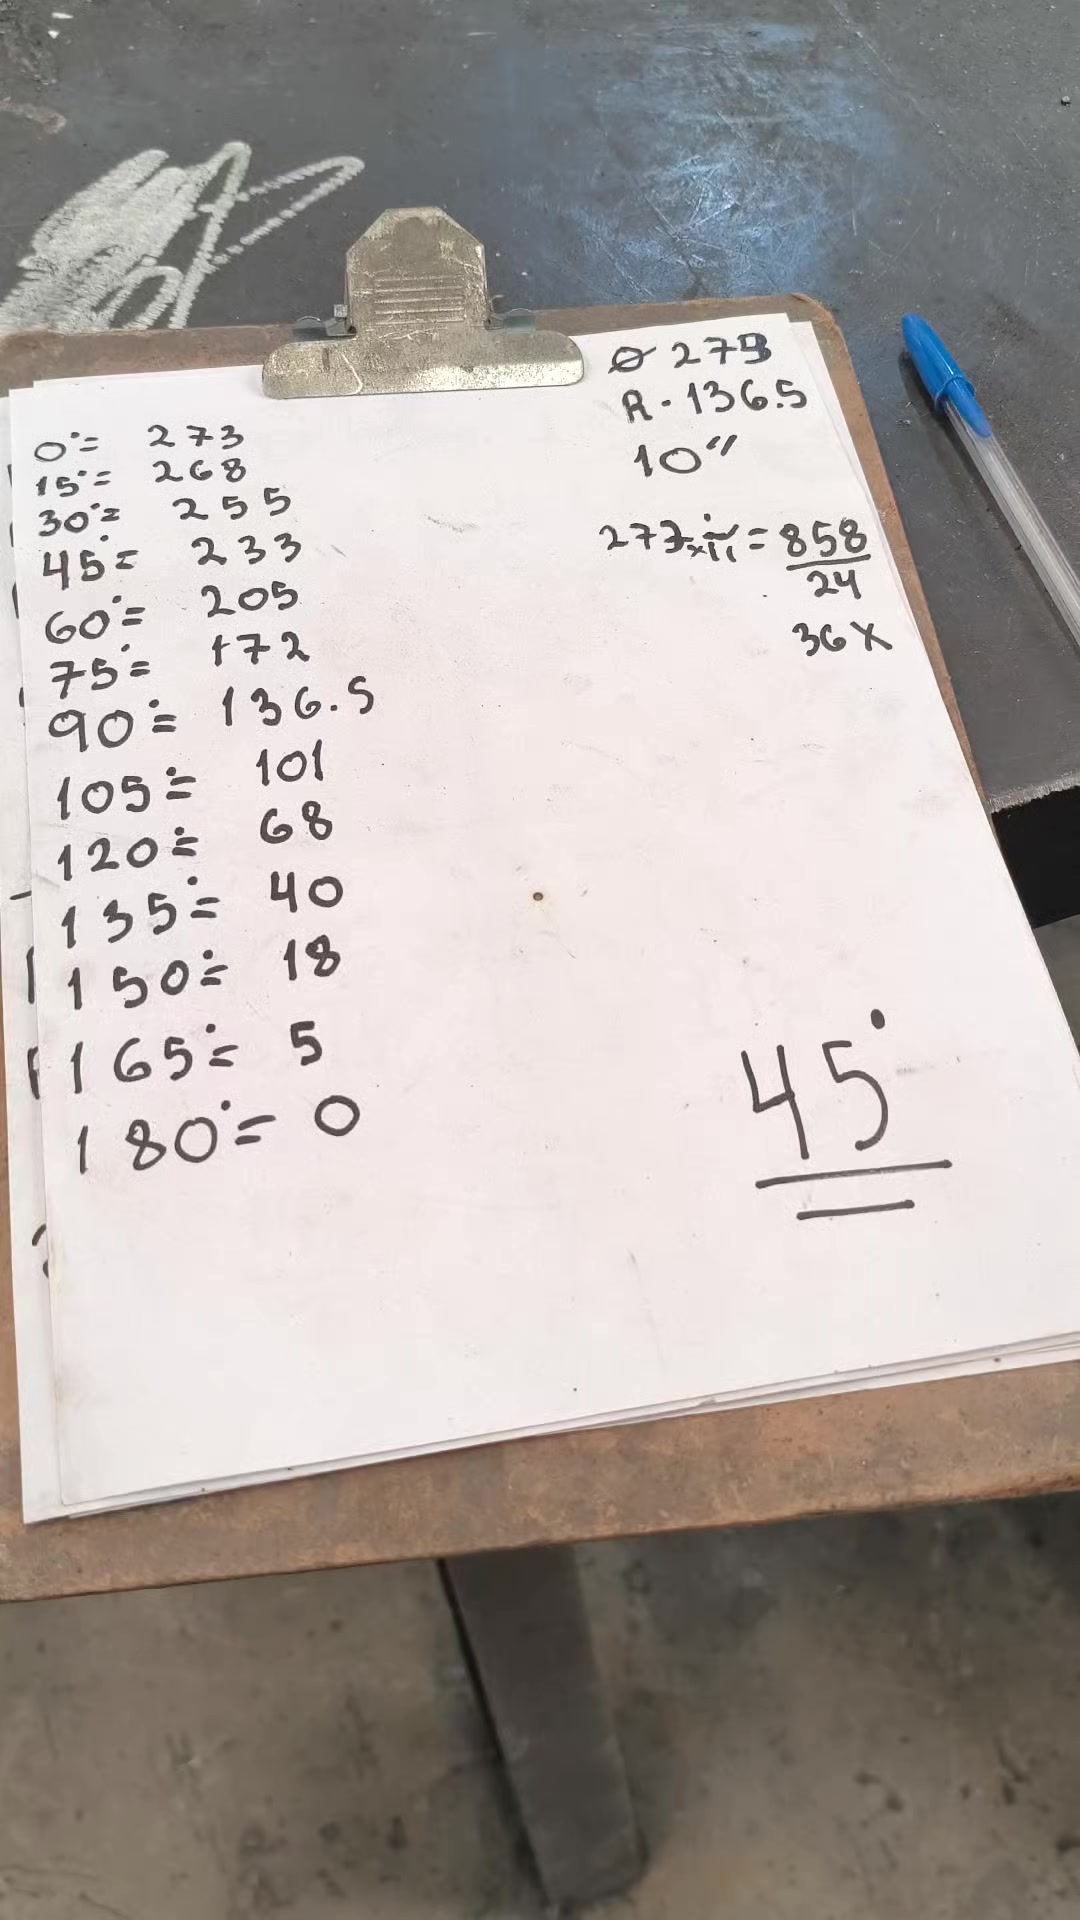 Ø 273
R - 136.5
10"
0°= 273
15°= 268
30°= 255
45°= 233
60°= 205
75°= 172
90°= 136.5
105°= 101
120°= 68
135°= 40
150°= 18
165°= 5
180°= 0
273xπ = 858
24
36 X
45°